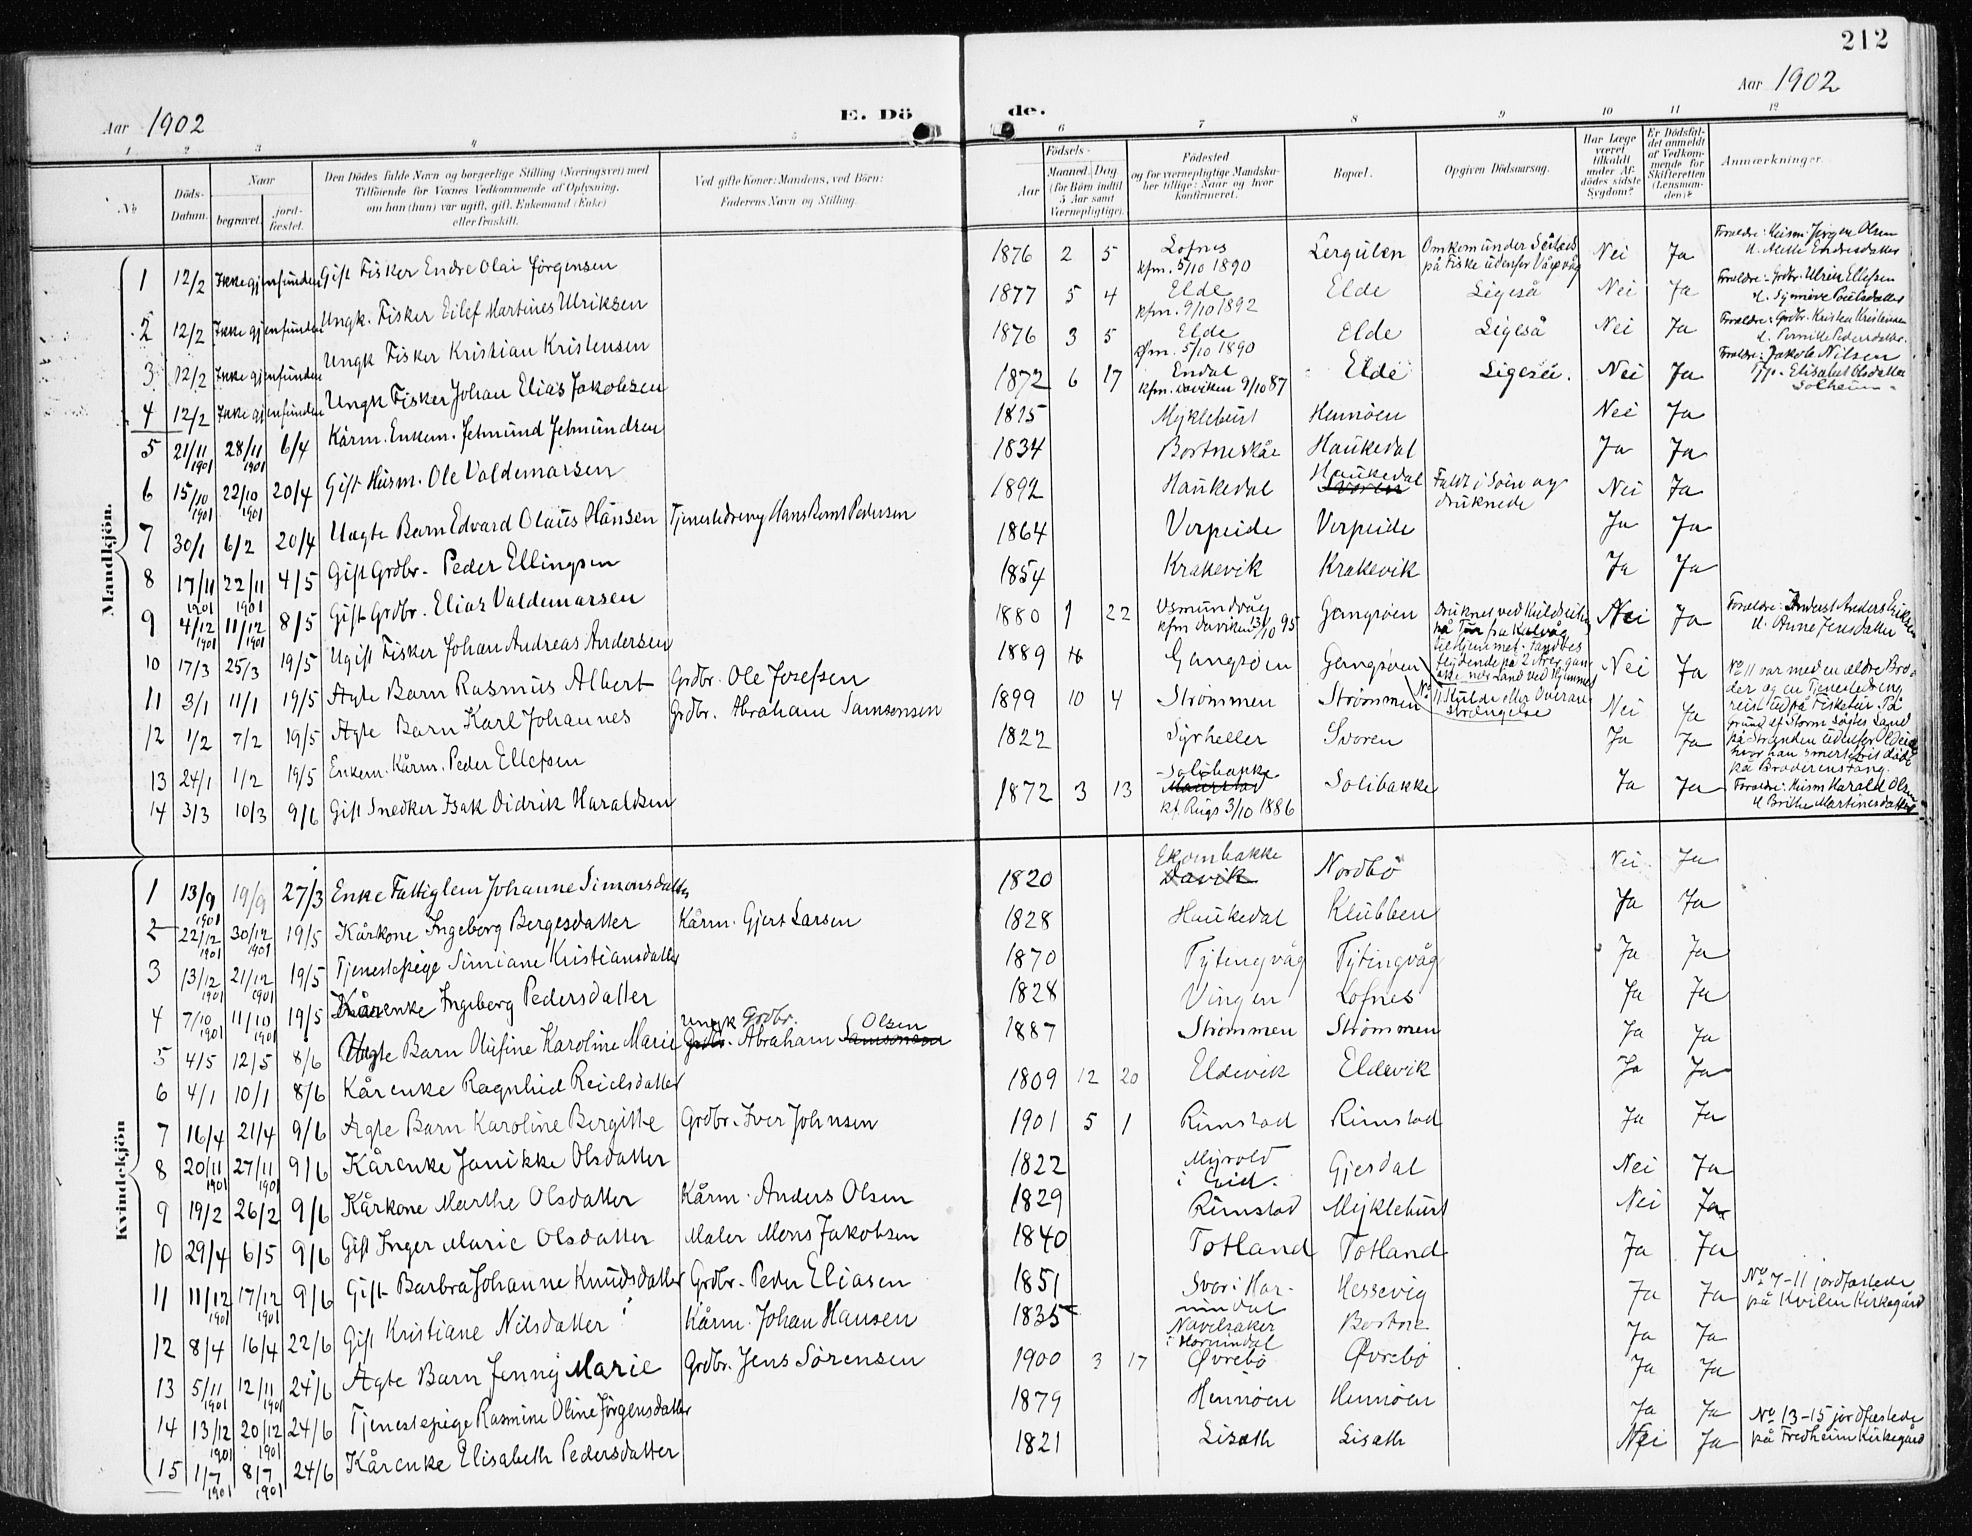 212
Aar 1902
E. Dö
de.
Aar 1902
1 2 3 4 5
6 7 8 9 10 11 12
No
Döds-Datum.
Naar
begravet.
jord-fæstet.
Den Dödes fulde Navn og borgerlige Stilling (Næringsvei) med
Tilföiende for Voxnes Vedkommende af Oplysning,
om han (hun) var ugift, gift, Enkemand (Enke)
eller fraskilt.
Ved gifte Koner: Mandens, ved Börn:
Faderens Navn og Stilling.
Födsels-
Aar
Maaned. Dag
(for Börn indtil
5 Aar samt
Værnepligtige).
Födested
og for værnepligtige Mandska-
ber tillige: Naar og hvor
konfirmeret.
Bopæl.
Opgiven Dödsaarsag.
Har Læge
været
tilkaldt
under Af-
dödes sidste
Sygdom?
Er Dödsfal-
det anmeldt
af Vedkom-
mende for
Skifteretten
(Lensman-
den)?
Anmærkninger.
Mandkjön.
1 12/2 Ikke gjenfunden Gift Fisker Endre Olai Jörgensen 1876 2 5 Lofnes kfm. 5/10 1890 Lergulen Omkom under Seilads på Fiske udenfor Vågsvåg Nei Ja Forældre: Husm. Jörgen Olsen
2 12/2 Ikke gjenfunden Ungk. Fisker Eilef Martines Ulriksen 1877 5 4 Elde kfm. 9/10 1892 Elde Ligeså Nei Ja Forældre: Grdbr. Ulrik Ellefsen
3 12/2 Ikke gjenfunden Ungk Fisker Kristian Kristensen 1876 3 5 Elde kfm. 5/10 1890 Elde Ligeså Nei Ja Forældre: Grdbr. Kristen Kristensen
4 12/2 Ikke gjenfunden Ungk Fisker Johan Elias Jakobsen 1872 6 17 Endal kfm. Daviken 9/10 87 Elde Ligeså. Nei Ja Forældre: Jakob Nilsen Elisabet Olsdatter Solheim
5 21/11 1901 28/11 1901 6/4 Kårm. Enkem. Jetmund Jetmundsen 1815 Myklebust Hennöen Nei Ja
6 15/10 1901 22/10 1901 20/4 Gift Husm. Ole Valdemarsen 1834 Bortneskår Haukedal Ja Ja
7 30/1 6/2 20/4 Uægte Barn Edvard Olaus Hansen Tjenestedreng Hans Bernt Pedersen 1892 Haukedal Haukedal Svoren Faldt i Söen og druknede Nei Ja
8 17/11 1901 22/11 1901 4/5 Gift Grdbr. Peder Ellingsen 1864 Verpeide Verpeide Ja Ja
9 4/12 1901 11/12 1901 8/5 Gift Grdbr. Elias Valdemarsen 1854 Krakevik Krakevik Ja Ja
10 17/3 25/3 19/5 Ugift Fisker Johan Andreas Andersen 1880 1 22 Osmundvåg kfm Daviken 13/10 95 Gangsöen Nei Ja
11 3/1 11/1 19/5 Ægte Barn Rasmus Albert Grdbr. Ole Josefsen 1889 Gangsöen Gangsöen Kulde eller Overanstrængelse Nei Ja No 11 var med en ældre Broder og en Tjenestedreng reist ud på Fisketur. På Grund af Storm søgtes Land på Stranden udenfor hvor han smertefrit döde på Broderens Fang.
12 1/2 7/2 19/5 Ægte Barn Karl Johannes Grdbr. Abraham Samsonsen 1899 10 4 Strömmen Strömmen Nei Ja
13 24/1 1/2 19/5 Enkem. Kårm. Peder Ellefsen 1822 Syrheller Svoren Ja Ja
14 3/3 10/3 9/6 Gift Snedker Isak Didrik Haraldsen 1872 3 13 Solibakke kf. Rugs 3/10 1886 Solibakke Ja Ja Forældre: Husm Harald Olsen
Kvindekjön
1 13/9 1901 19/9 27/3 Enke Fattiglem Johanne Simonsdatter 1820 Davik Nordbö Nei Ja
2 22/12 1901 30/12 1901 19/5 Kårkone Ingeborg Bergesdatter Kårm. Gjert Larsen 1828 Haukedal Klubben Ja Ja
3 13/12 1901 21/12 1901 19/5 Tjenestepige Simiane Kristiansdatter 1870 Tytingvåg Tytingvåg Ja Ja
4 7/10 1901 11/10 1901 19/5 Kårenke Ingeborg Pedersdatter 1828 Vingen Lofnes Ja Ja
5 4/5 12/5 8/6 Uægte Barn Olufine Karoline Marie Ungk Grdbr. Abraham Olsen Samsonsen 1887 Strömmen Strömmen Ja Ja
6 4/1 10/1 8/6 Kårenke Ragnhild Reielsdatter 1809 12 20 Eldevik Eldevik Ja Ja
7 16/4 21/4 9/6 Ægte Barn Karoline Bergitte Grdbr. Iver Johnsen 1901 5 1 Rimstad Rimstad Ja Ja
8 20/11 1901 27/11 1901 9/6 Kårenke Jannikke Olsdatter 1822 Myrold Gjesdal Nei Ja
9 19/2 26/2 9/6 Kårkone Marthe Olsdatter Kårm. Anders Olsen 1829 Rimstad Myklebust Nei Ja
10 29/4 6/5 9/6 Gift Inger Marie Olsdatter Maler Mons Jakobsen 1840 Totland Totland Ja Ja
11 11/12 1901 17/12 1901 9/6 Gift Barbra Johanne Knudsdatter Grdbr. Peder Eliasen 1851 Svor i Hornindal Hessevig Ja Ja No 7-11 jordfæstede på Kvilen Kirkegård
12 8/4 16/4 22/6 Gift Kristiane Nilsdatter Kårm. Johan Hansen 1835 Navelsaker i Hornindal Bortne Ja Ja
13 5/11 1901 12/11 1901 24/6 Ægte Barn Jenny Marie Grdbr. Jens Sörensen 1900 3 17 Øvrebö Øvrebö Ja Ja
14 13/12 1901 20/12 1901 24/6 Tjenestepige Rasmine Oline Jörgensdatter 1879 Hennöen Hennöen Ja Ja No 13-15 jordfæstede på Fredheim Kirkegård
15 1/7 1901 8/7 1901 24/6 Kårenke Elisabeth Pedersdatter 1821 Lisæth Lisæth Nei Ja